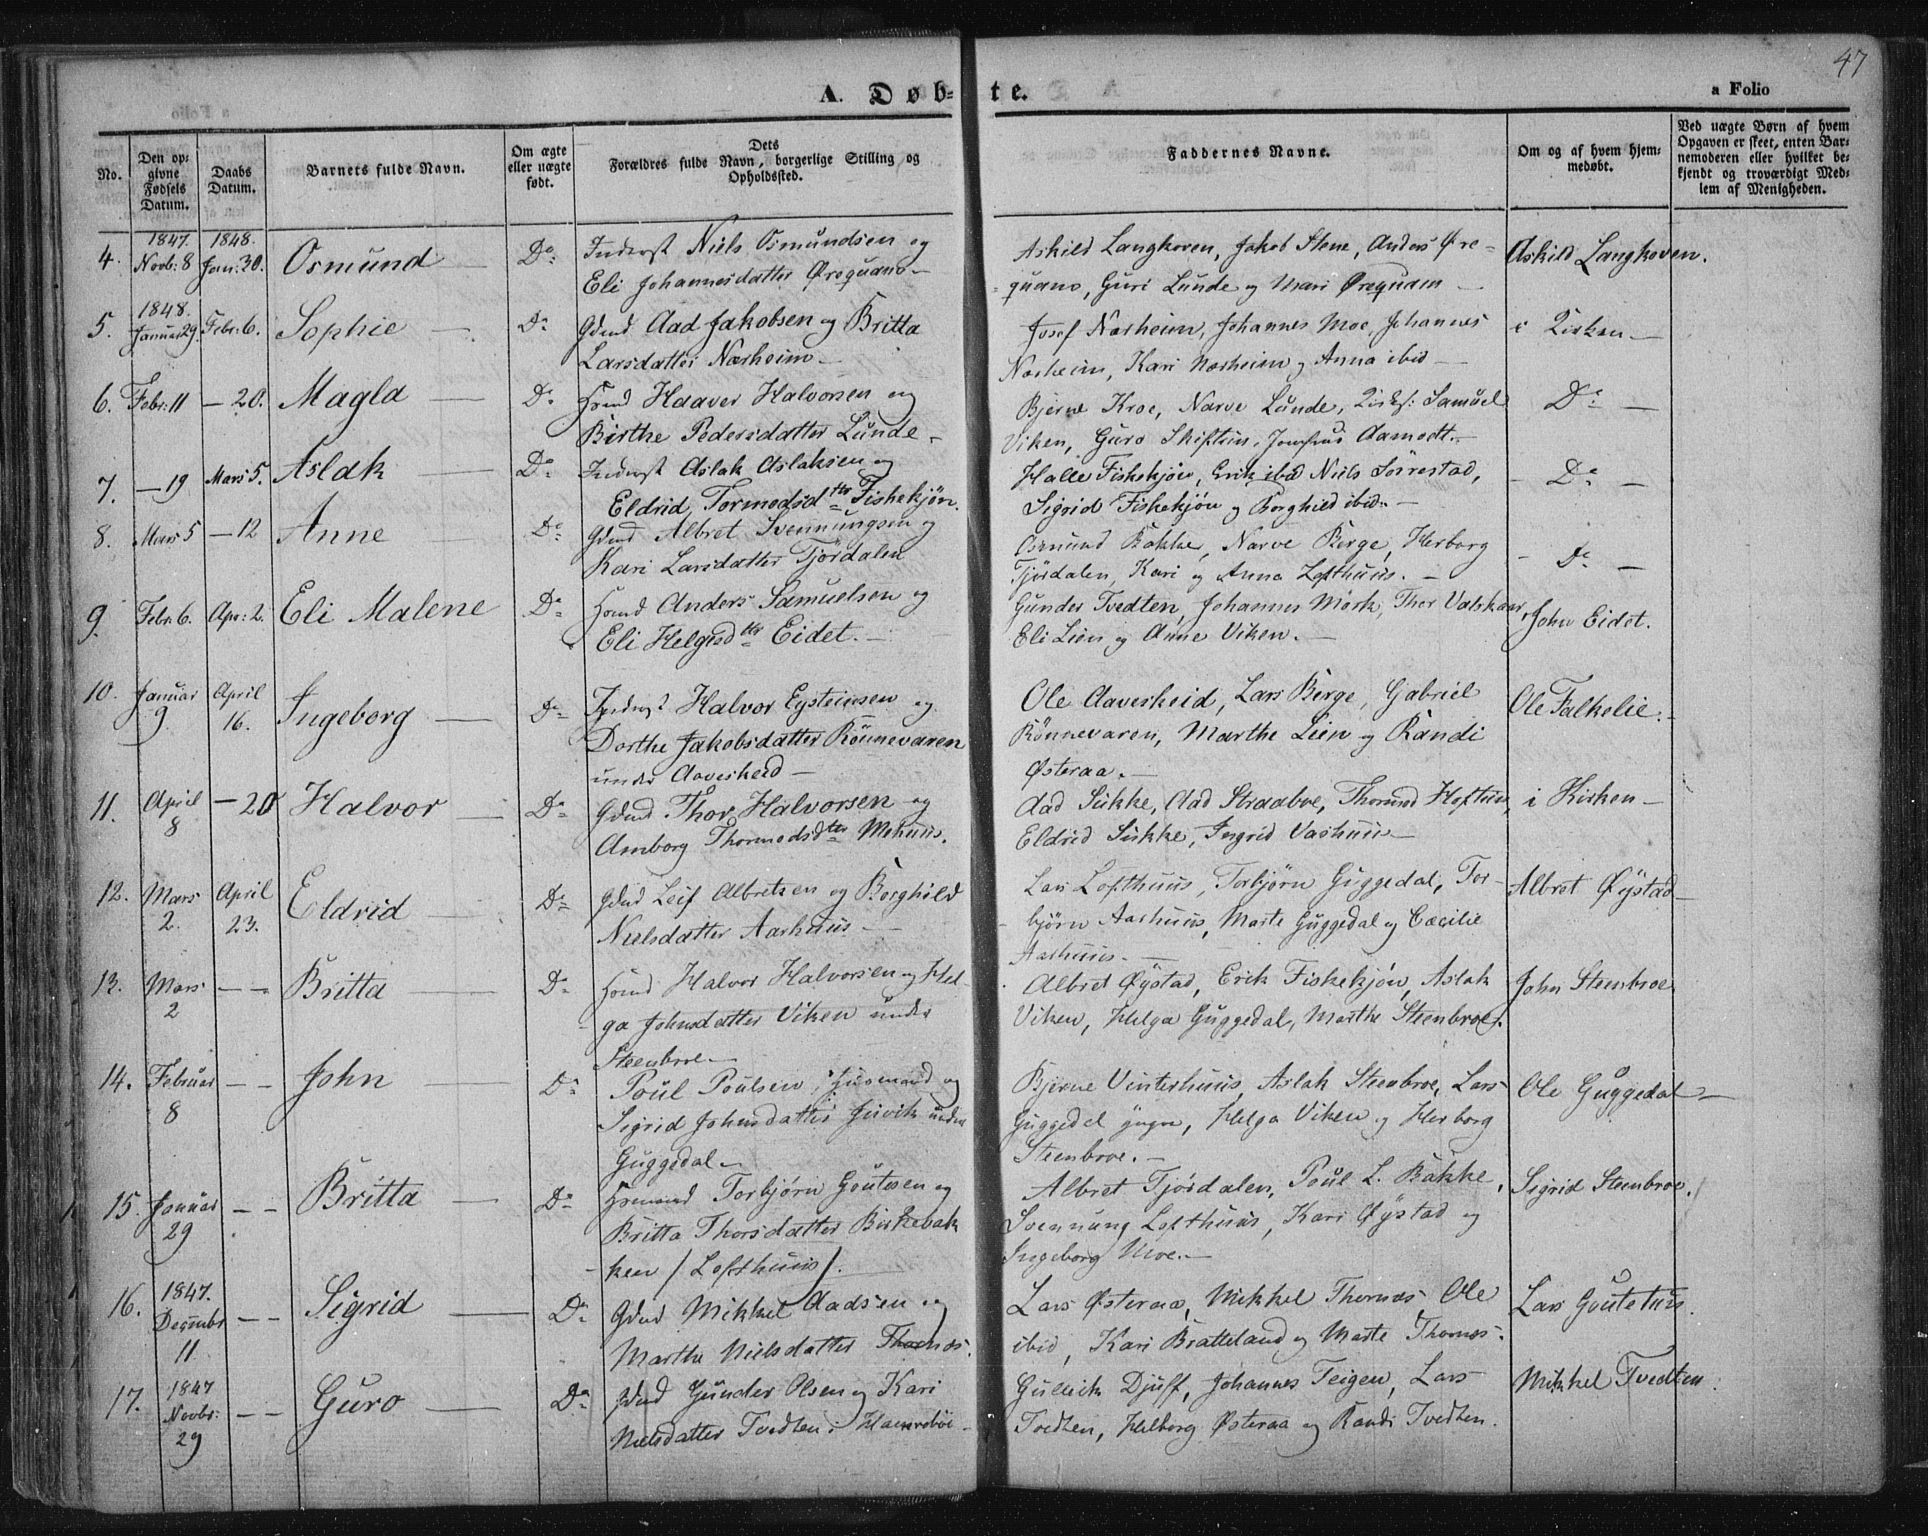 47
A. Døbte.
a Folio
No.
Den opgivne Fødsels Datum.
Daabs Datum.
Barnets fulde Navn.
Om ægte eller uægte født.
Dets Forældres fulde Navn, borgerlige Stilling og Opholdssted.
Faddernes Navne.
Om og af hvem hjemmedøbt.
Ved uægte Børn af hvem Opgaven er skeet, enten Barnemoderen eller hvilket bekjendt og troværdigt Medlem af Menigheden.
4. 1847. Novb: 8 1848. Jan: 30. Osmund Do Inderst Niels Osmundsen og
Eli JohannesdatterØrequam
Askild Langkoven, Jakob Stene, Anders Øre-
quam, Guri Lunde og Mari Ørequam
Askild Langkoven.
5. 1848. Januar 29. Febr: 6. Sophie Do Gdmd Aad Jakobsen og Britta
Larsdatter Nærheim
Josef Nærheim, Johannes Moe, Johannes
Nærheim, Kari Nærheim og Anna ibid
i Kirken
6. Febr: 11 — 20. Magla Do Hsmd Haaver Halvorsen og
Birthe Pedersdatter Lunde
Bjerne Kroe, Narve Lunde, Samuel
Viken, Guro Skiftun, Jomfrue Aamodt.
Do
7. — 19 Mars 5. Aslak Do Inderst Aslak Aslaksen og
Eldrid Tormodsdtr Fiskekjøn.
Halle Fiskekjøn, Erik ibid Niels Sørrestad,
Sigrid Fiskekjøn og Borghild ibid.
Do
8. Mars 5 — 12 Anne Do Gdmd Albret Svennungsen og
Kari Larsdatter Tjørdalen
Osmund Bakke, Narve Berge, Herborg
Tjørdalen, Kari og Anna Lofthuus.
Do
9. Febr: 6. Apr: 2. Eli Malene Do Hsmd Anders Samuelsen og
Eli Helgesdtr Eidet.
Gunder Tvedten, Johannes Mörk, Thor Valskaar,
Eli Lien og Anne Viken.
John Eidet.
10. Januar 9 April 16. Ingeborg Do Inderst Halvor Eysteinsen og
Dorthe Jakobsdatter Rönnevaren
under Aaverheid
Ole Aaverheid, Lars Berge, Gabriel
Rönnevaren, Marthe Lien og Randi
Østeraa.
Ole Falkelie.
11. April 8 — 20 Halvor Do Gdmd Thor Halvorsen og
Amborg Thormodsdtr Mehuus.
Aad Sukke, Aad Straaboe, Thormod Hoftun,
Eldrid Sukke, Ingrid Vashuus
i Kirken
12. Mars 2. April 23. Eldrid Do Gdmd Leif Albretsen og Borghild
Nielsdatter Aarhuus
Lars Lofthuus, Torbjörn Guggedal, Tor-
björn Aarhuus, Marte Guggedal og Cæcilie
Aarhuus.
Albret Øystad
13. Mars 2 — — Britta Do Hsmd Halvor Halvorsen og Hel-
ga Johnsdatter Viken under
Steenbroe
Albret Øystad, Erik Fiskekjøn, Aslak
Viken, Helga Guggedal, Marthe Steenbroe.
John Steenbroe.
14. Februar 8 — — John Do Poul Poulsen, Huusmand og
Sigrid Johnsdatter Juvik under
Guggedal
Bjerne Vinterhuus, Aslak Steenbroe, Lars
Guggedal yngre, Helga Viken og Herborg
Steenbroe.
Ole Guggedal
15. Januar 29 — — Britta Do Huusmand Torbjørn Goutsen og
Britta Thorsdatter Birkebak-
ken / Lofthuus /.
Albret Tjørdalen, Poul L. Bakke,
Svennung Lofthuus, Kari Øystad og
Ingeborg Moe.
Sigrid Steenbroe.
16. 1847. Decembr 11 — — Sigrid Do Gdmd Mikkel Aadsen og
Marthe Nielsdatter Thornæs.
Lars Østeraa, Mikkel Thornæs Ole
ibid, Kari Bratteland og Marte Thornæs.
Lars Goutetun.
17. 1847 Novbr: 29 — — Guro Do Gdmd Gunder Olsen og Kari
Nielsdatter Tvedten i Hamrebøe
Gullik Djuff, Johannes Teigen, Lars
Tvedten, Helborg Østeraa og Randi Tvedten.
Mikkel Tvedten.